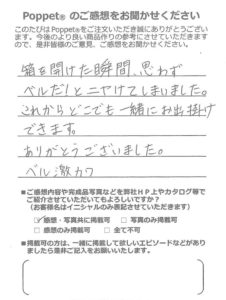 Poppet® のご感想をお聞かせください
このたびはPoppet®をご注文いただき誠にありがとうござい
ます。今後のより良い商品作りの参考にさせていただきます
ので、是非皆様のご意見、ご感想をお聞かせください。
箱を開けた瞬間、思わず
ベルだ!とニヤけてしまいました。
これからどこでも一緒にお出掛け
できます。
ありがとうございました。
ベル激カワ
■ご感想内容や完成品写真などを弊社HP上やカタログ等で
ご紹介させていただいてもよろしいですか?
(お客様名はイニシャルのみ表記させていただきます)
☑感想・写真共に掲載可 □写真のみ掲載可
□感想のみ掲載可 □全て不可
■掲載可の方は、一緒に掲載して欲しいエピソードなどがあり
ましたら是非ご記入をお願いいたします。